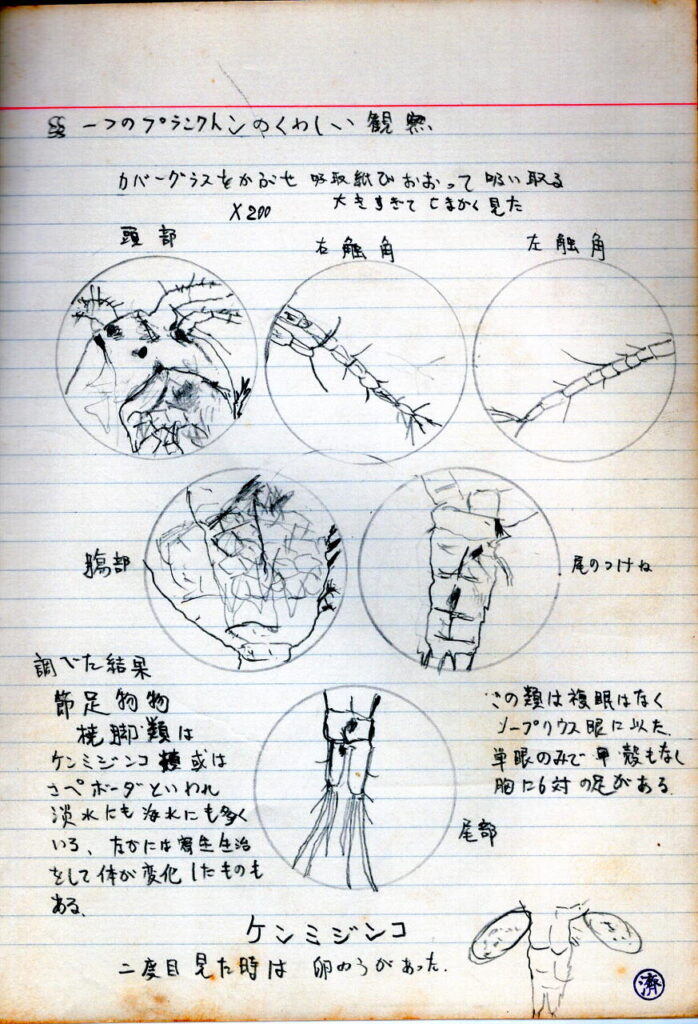 §§ 一つのプランクトンのくわしい観察
カバーグラスをかぶせ 吸取紙でおおって 吸い取る
×200 大きすぎてこまかく見た
頭部
右触角
左触角
胸部
尾のつけね
調べた結果
節足物物
橈脚類は
ケンミジンコ 或は
さぺボーダといわれ
淡水にも海水にも多く
いる、なかには寄生生治
をして体が変化したものも
ある。
この類は複眼はなく
ノープリウス眼に以た
単眼のみで甲殻もなし
胸に6対の足がある。
尾部
ケンミジンコ
二度目見た時は 卵のうがあった.
済